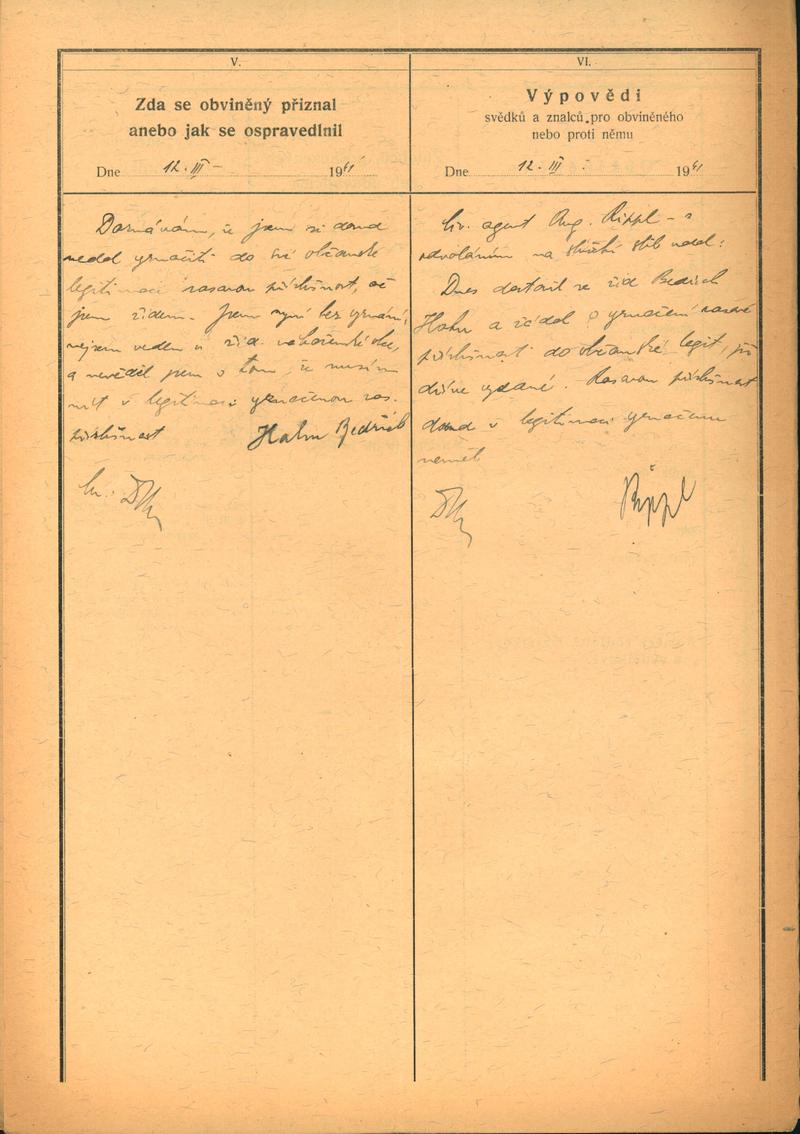 V.
Zda se obviněný přiznal
anebo jak se ospravedlnil
Dne 12. III – 1941
Doznávám, že jsem si dosud
nedal vyznačiti do své občanské
legitimaci rasovou příslušnost, ač
jsem židem. Jsem nyní bez vyznání,
nejsem veden u žid. náboženské obce,
a nevěděl jsem o tom, že musím
mít v legitimaci vyznačenou ras.
příslušnost Hahn Bedřich
VI.
Výpovědi
svědků a znalců pro obviněného
nebo proti němu
Dne 12. III 1941
Civ. agent Aug. Rippl – s
odvoláním na služební slib uvedl:
Dnes dostavil se žid Bedřich
Hahn a žádal o vyznačení rasové
příslušnosti do občanské legit., již
dříve vydané. Rasovou příslušnost
dosud v legitimaci vyznačenu
neměl
Rippl